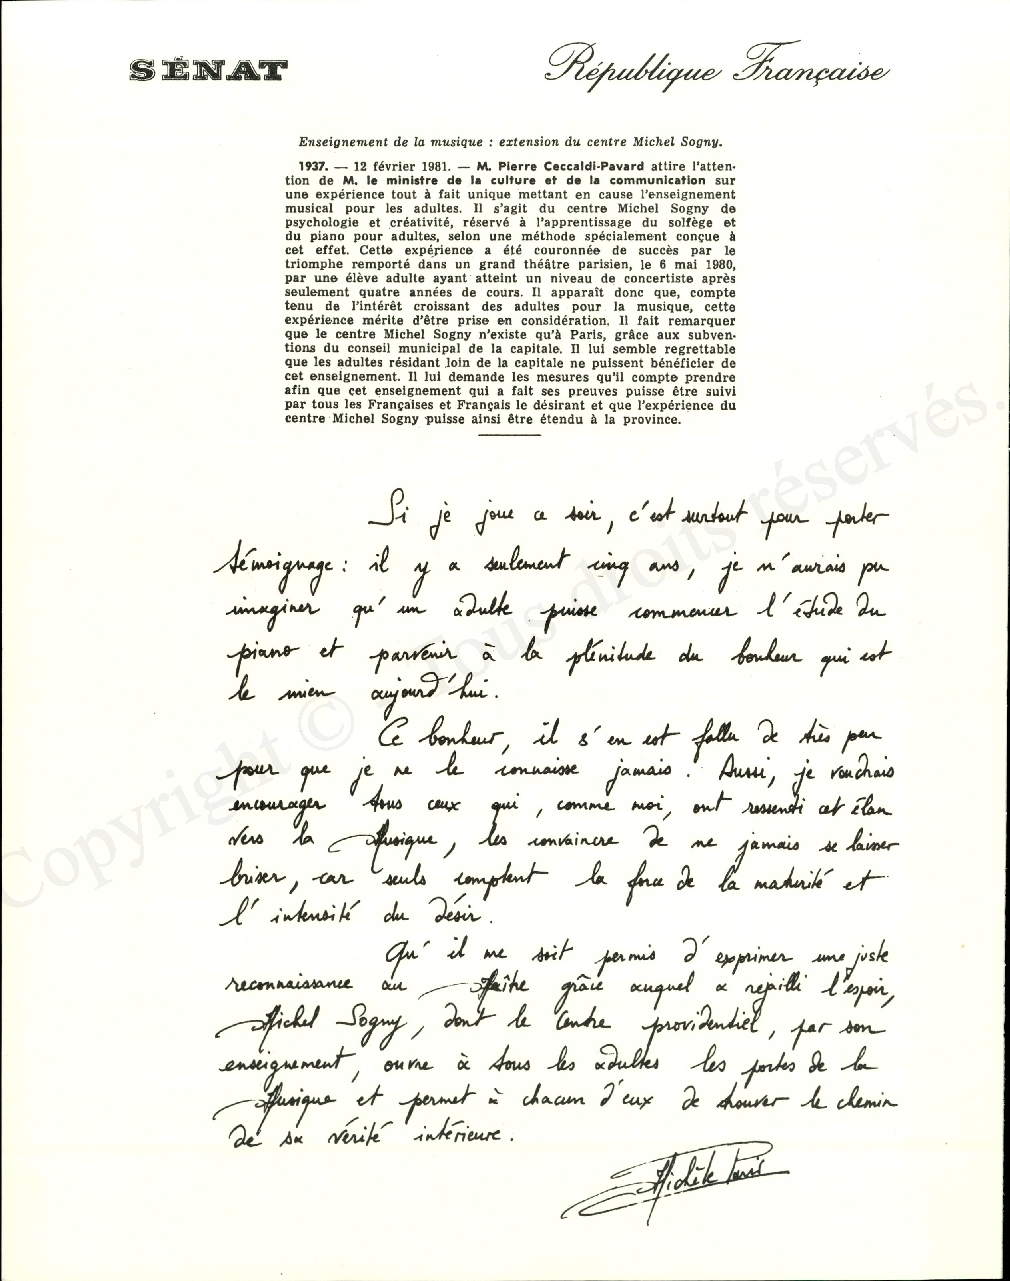 SÉNAT
République Française
Enseignement de la musique : extension du centre Michel Sogny.
1937. — 12 février 1981. — M. Pierre Ceccaldi-Pavard attire l'atten-
tion de M. le ministre de la culture et de la communication sur
une expérience tout à fait unique mettant en cause l'enseignement
musical pour les adultes. Il s'agit du centre Michel Sogny de
psychologie et créativité, réservé à l'apprentissage du solfège et
du piano pour adultes, selon une méthode spécialement conçue à
cet effet. Cette expérience a été couronnée de succès par le
triomphe remporté dans un grand théâtre parisien, le 6 mai 1980,
par une élève adulte ayant atteint un niveau de concertiste après
seulement quatre années de cours. Il apparaît donc que, compte
tenu de l'intérêt croissant des adultes pour la musique, cette
expérience mérite d'être prise en considération. Il fait remarquer
que le centre Michel Sogny n'existe qu'à Paris, grâce aux subven-
tions du conseil municipal de la capitale. Il lui semble regrettable
que les adultes résidant loin de la capitale ne puissent bénéficier de
cet enseignement. Il lui demande les mesures qu'il compte prendre
afin que cet enseignement qui a fait ses preuves puisse être suivi
par tous les Françaises et Français le désirant et que l'expérience du
centre Michel Sogny puisse ainsi être étendu à la province.
Si je joue ce soir, c'est surtout pour porter
témoignage : il y a seulement cinq ans, je n'aurais pu
imaginer qu'un adulte puisse commencer l'étude du
piano et parvenir à la plénitude du bonheur qui est
le mien aujourd'hui.
Ce bonheur, il s'en est fallu de très peu
pour que je ne le connaisse jamais. Aussi, je voudrais
encourager tous ceux qui, comme moi, ont ressenti cet élan
vers la Musique, les convaincre de ne jamais se laisser
briser, car seuls comptent la force de la maturité et
l'intensité du désir.
Qu'il me soit permis d'exprimer une juste
reconnaissance au Maître grâce auquel a rejailli l'espoir,
Michel Sogny, dont le Centre providentiel, par son
enseignement, ouvre à tous les adultes les portes de la
Musique et permet à chacun d'eux de trouver le chemin
de sa vérité intérieure.
Michèle Paris
Copyright © Tous droits réservés.